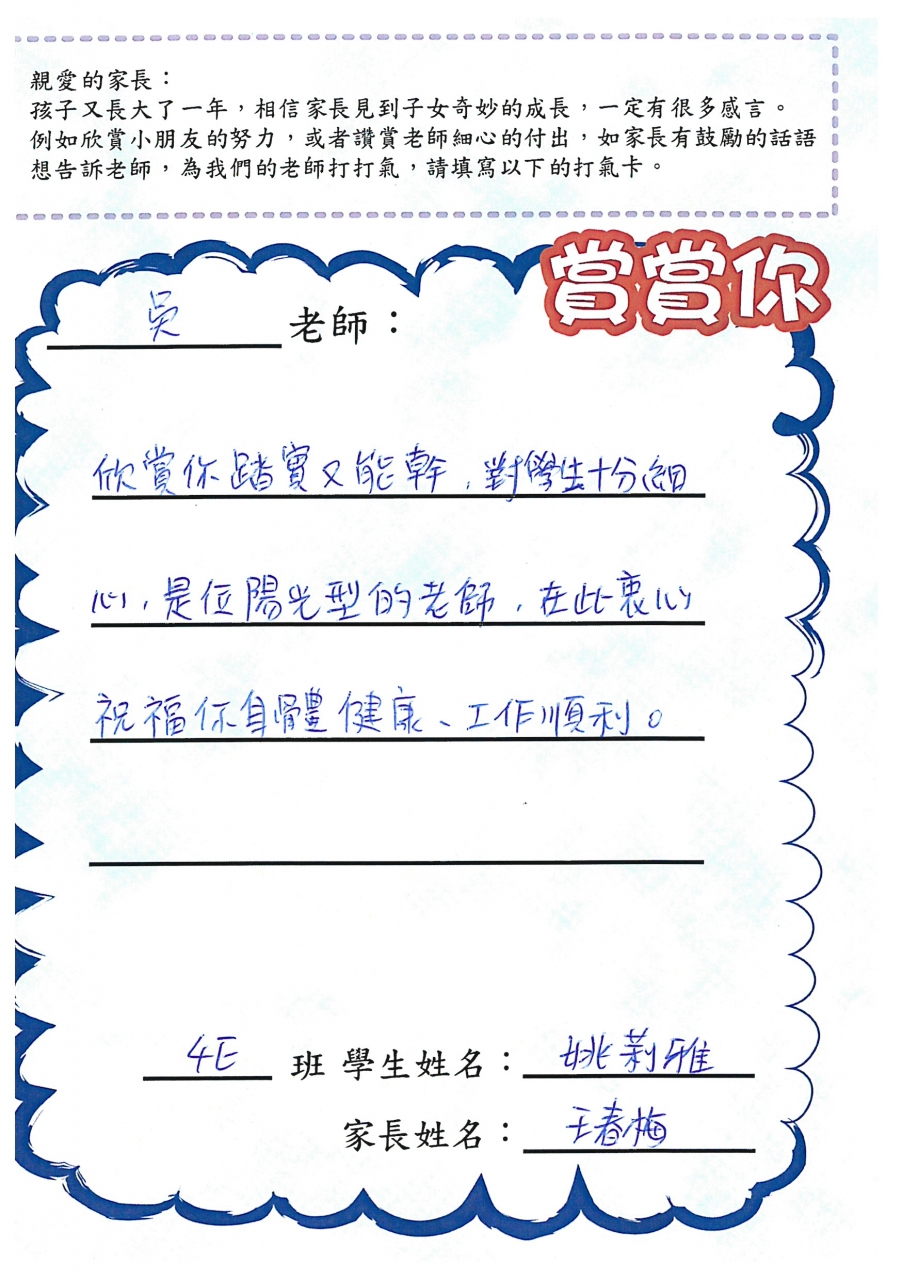 親愛的家長：
孩子又長大了一年，相信家長見到子女奇妙的成長，一定有很多感言。
例如欣賞小朋友的努力，或者讚賞老師細心的付出，如家長有鼓勵的話語
想告訴老師，為我們的老師打打氣，請填寫以下的打氣卡。
賞賞你
吳 老師：
欣賞你踏實又能幹，對學生十分細
心，是位陽光型的老師，在此衷心
祝福你身體健康、工作順利。
4E 班 學生姓名：姚莉雅
家長姓名：王春梅